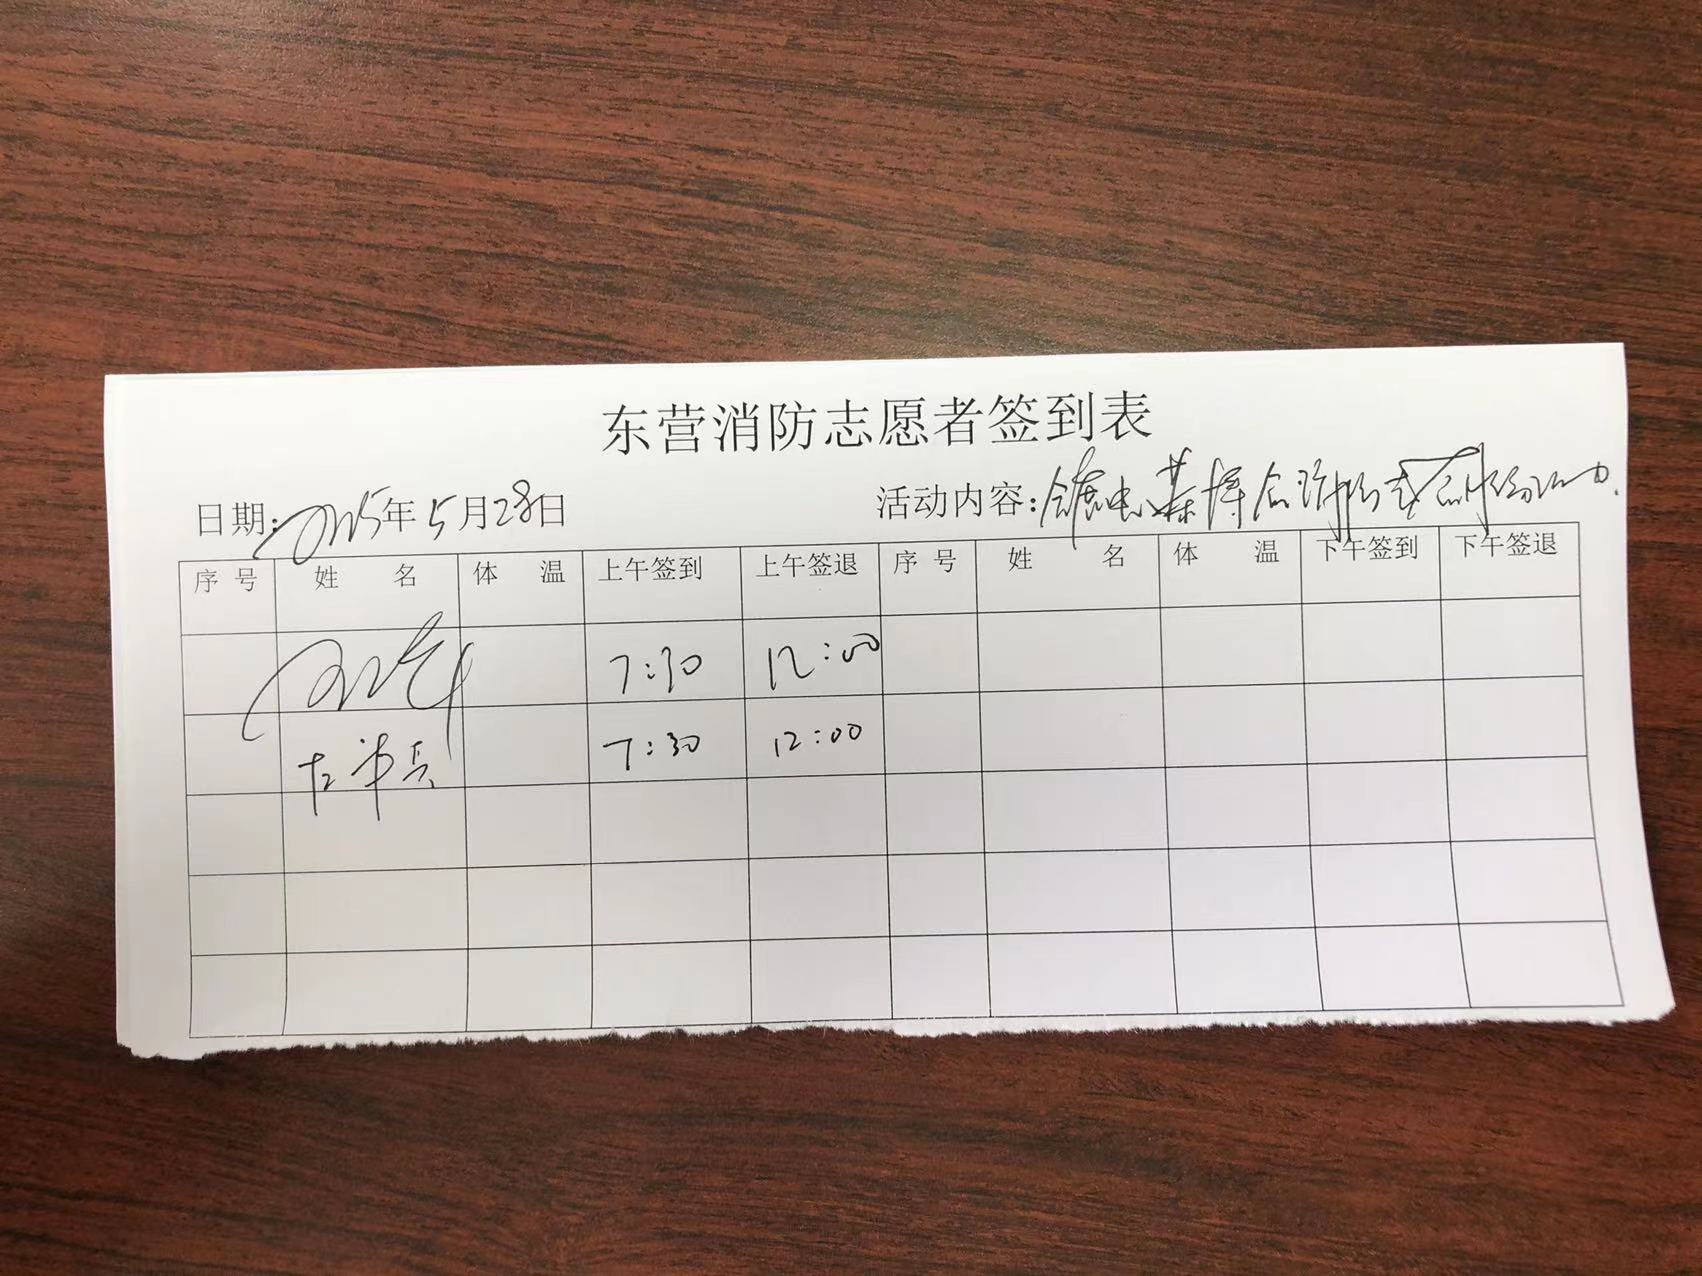 东营消防志愿者签到表
日期: 2025年5月28日 活动内容:
序号 姓名 体温 上午签到 上午签退 序号 姓名 体温 下午签到 下午签退
7:30 12:00
7:30 12:00